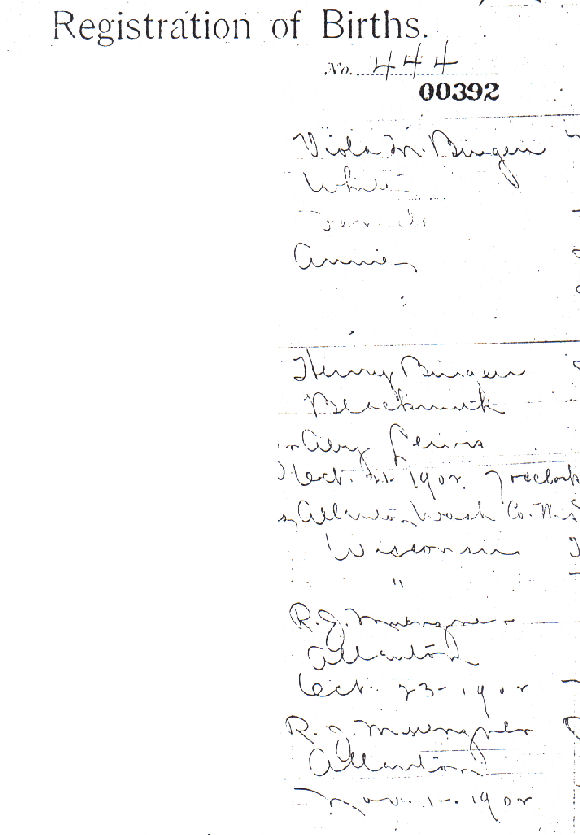 Registration of Births.
No. 444
00392
Viola M. Bingen
White
Female
Annie
Henry Bingen
Blacksmith
Lewis
Oct. 21 1902, 7 oclock
Allenton, Wash Co. Wis
Wisconsin
"
R.J.
Allenton
Oct. 23 - 1902
R. J.
Allenton
Nov. 1 - 1902